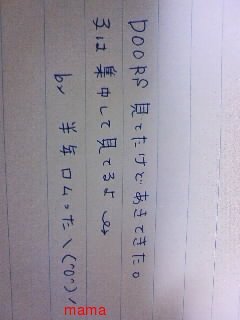 DOORS 見てたけどあきてきた。
子は 集中して見てるよ
by 半年ロムった\(^o^)/
mama